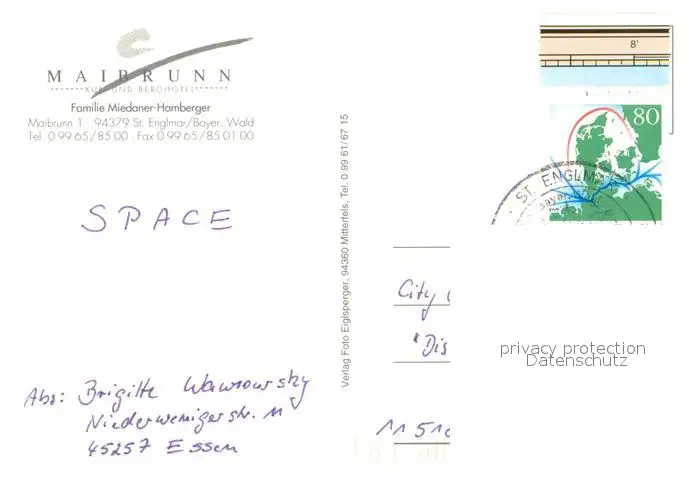 MAIBRUNN
KUR- UND BERGHOTEL
Familie Miedaner-Hamberger
Maibrunn 1 · 94379 St. Englmar/Bayer. Wald
Tel. 0 99 65/85 00 · Fax 0 99 65/85 01 00
SPACE
Abs: Brigitte Wawrowsky
Niederwenigerstr. 11
45257 Essen
Verlag Foto Eiglsperger, 94360 Mitterfels, Tel. 0 99 61/67 15
8'
80
ST. ENGLM
City
"Dis
11516
privacy protection
Datenschutz